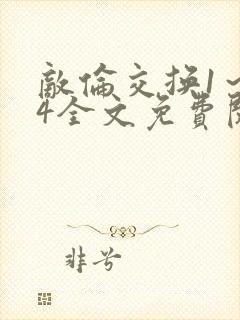 敵倫交换1～
4全文免費閱
非兮